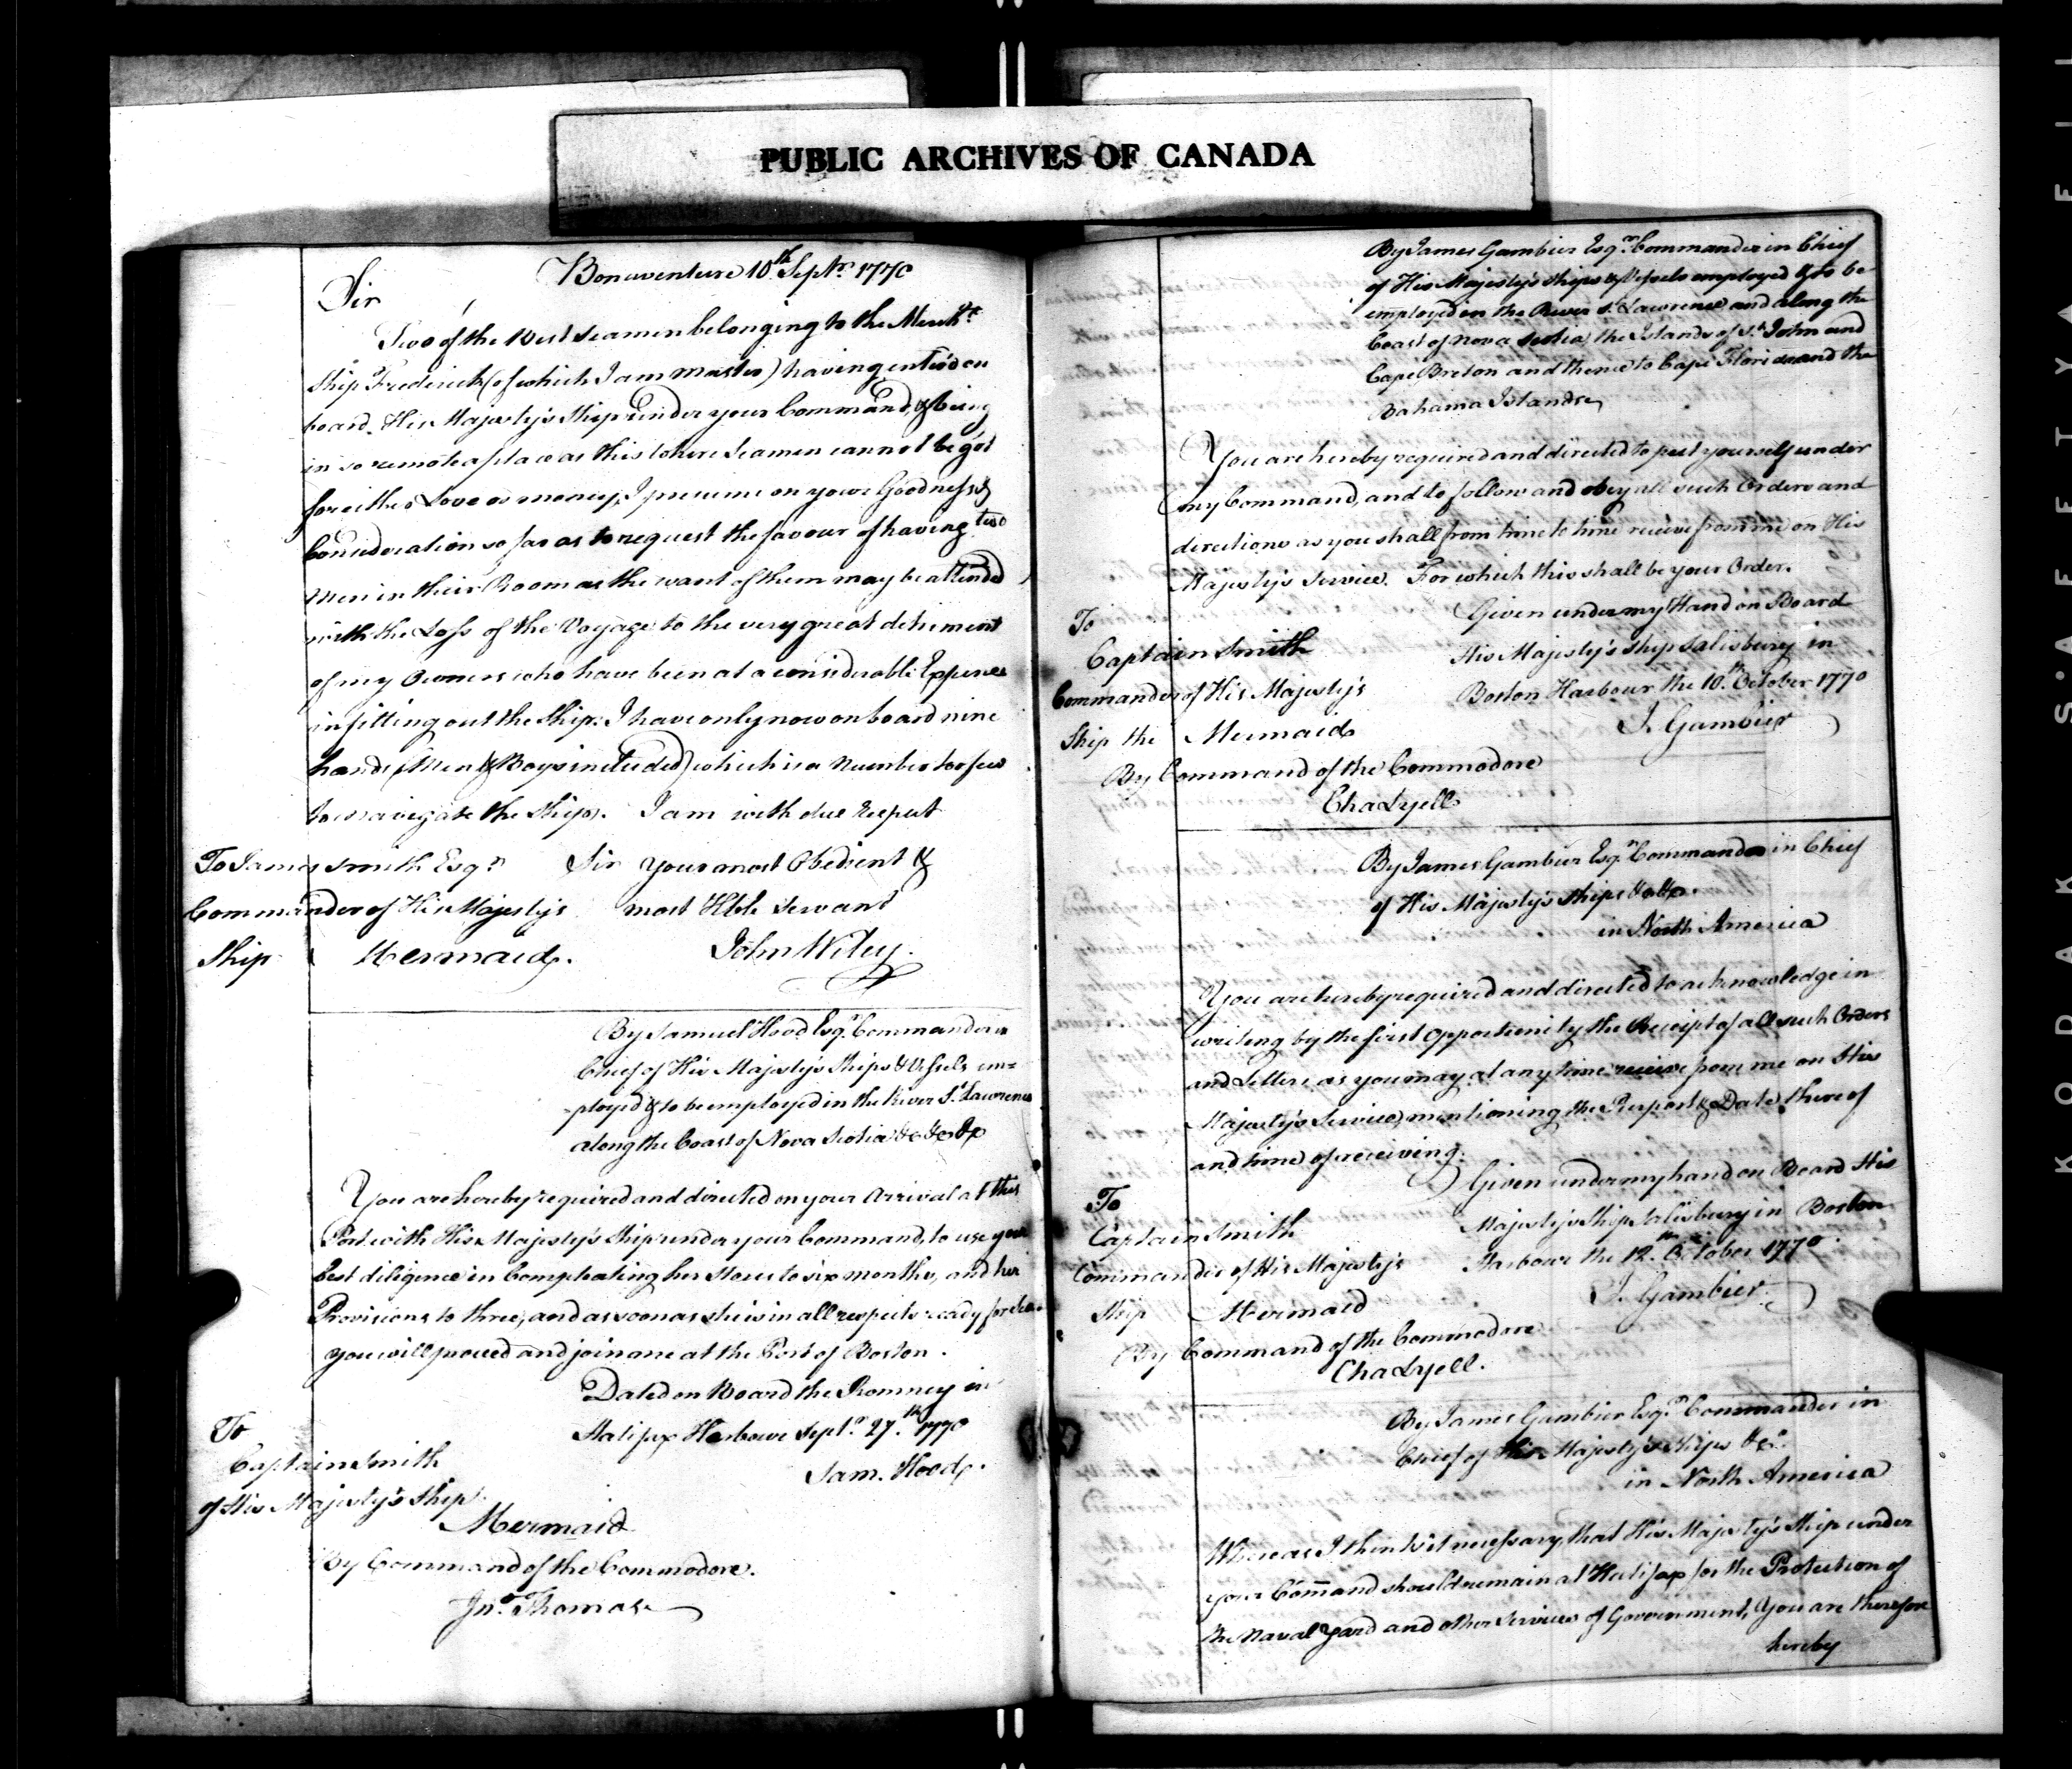 PUBLIC ARCHIVES OF CANADA
Bonaventure 10th Septr. 1770
Sir
Two of the best seamen belonging to the Merch.t
Ship Frederick (of which I am master) having enter'd on
board His Majesty's Ship under your Command, & being
in so remote a place as this where Seamen cannot be got
for either Love or money, I presume on your Goodness &
Consideration so far as to request the favour of having two
Men in their Room as the want of them may be attended
with the Loss of the Voyage to the very great detriment
of my Owners who have been at a considerable Expence
in fitting out the Ship: I have only now on board nine
hands (Men & Boys included) which is a Number too few
to navigate the Ship. I am with due Respect
To James Smith Esqr. Sir your most Obedient &
Commander of His Majesty's most Hble Servant
Ship Mermaid. John Wiley.
By Samuel Hood Esqr. Commander in
Chief of His Majesty's Ships & Vessels em=
-ployed & to be employed in the River St. Lawrence
along the Coast of Nova Scotia &c &c &c
You are hereby required and directed on your Arrival at this
Port with His Majesty's Ship under your Command, to use your
best diligence in Compleating her Stores to six months, and her
Provisions to three, and as soon as she is in all respects ready for Sea
you will proceed and join me at the Port of Boston.
Dated on Board the Romney in
Halifax Harbour Septr. 27th. 1770
To
Captain Smith
Sam. Hood.
of His Majesty's Ship
Mermaid
By Command of the Commodore.
Jno. Thomas
By James Gambier Esqr. Commander in Chief
of His Majesty's Ships & Vessels employed & to be
employed in the River St. Lawrence and along the
Coast of Nova Scotia, the Islands of St. John and
Cape Breton and thence to Cape Florida and the
Bahama Islands.
You are hereby required and directed to put yourself under
my Command, and to follow and obey all such Orders and
directions as you shall from time to time receive from me on His
Majesty's Service. For which this shall be your Order.
To Given under my Hand on Board
Captain Smith His Majesty's Ship Salisbury in
Commander of His Majesty's Boston Harbour the 10th. October 1770
Ship the Mermaid J. Gambier
By Command of the Commodore
Cha Lyell
By James Gambier Esqr. Commander in Chief
of His Majesty's Ships &c &c.
in North America
You are hereby required and directed to acknowledge in
writing by the first Opportunity the Receipt of all such Orders
and Letters as you may at any time receive from me on His
Majesty's Service, mentioning the Purport & Date thereof
and time of receiving.
Given under my hand on Board His
To
Captain Smith Majesty's Ship Salisbury in Boston
Commander of His Majesty's Harbour the 12th. October 1770.
Ship Mermaid J. Gambier.
By Command of the Commodore
Cha Lyell.
By James Gambier Esqr. Commander in
Chief of His Majesty's Ships &c.
in North America
Whereas I think it necessary, that His Majesty's Ship under
your Command should remain at Halifax for the Protection of
the Naval Yard and other Services of Government, You are therefore
hereby
KODAK S'AFETY